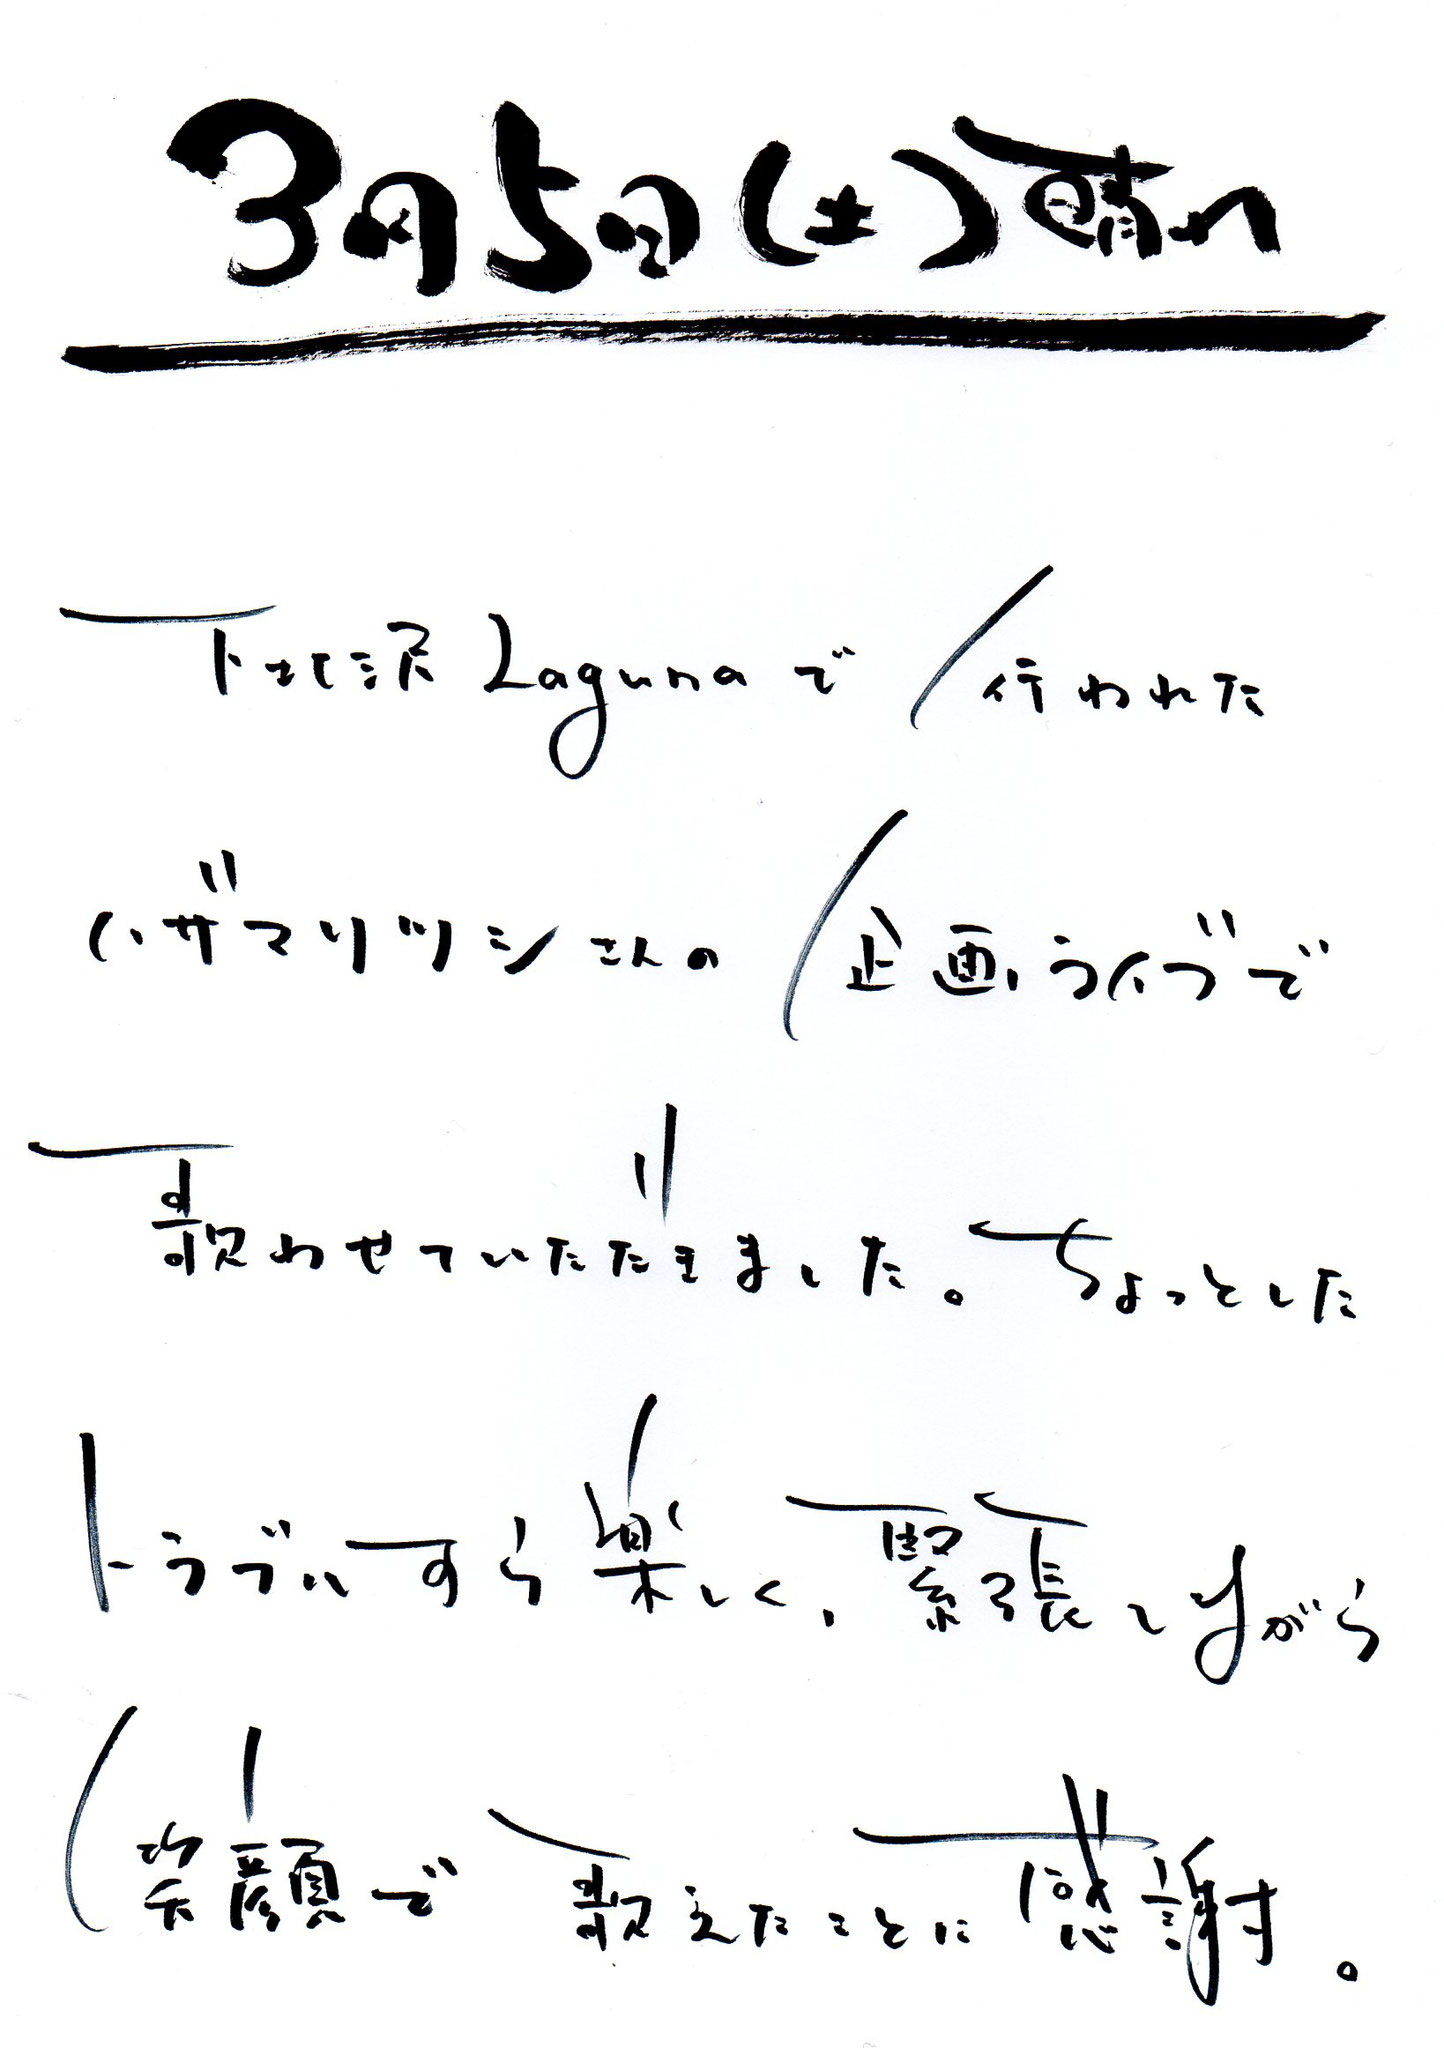 3月5日(土)晴れ
下北沢Lagunaで行われた
ハザマリツシさんの企画ライブで
歌わせていただきました。ちょっとした
トラブルすら楽しく、緊張しながら
笑顔で歌えたことに感謝。